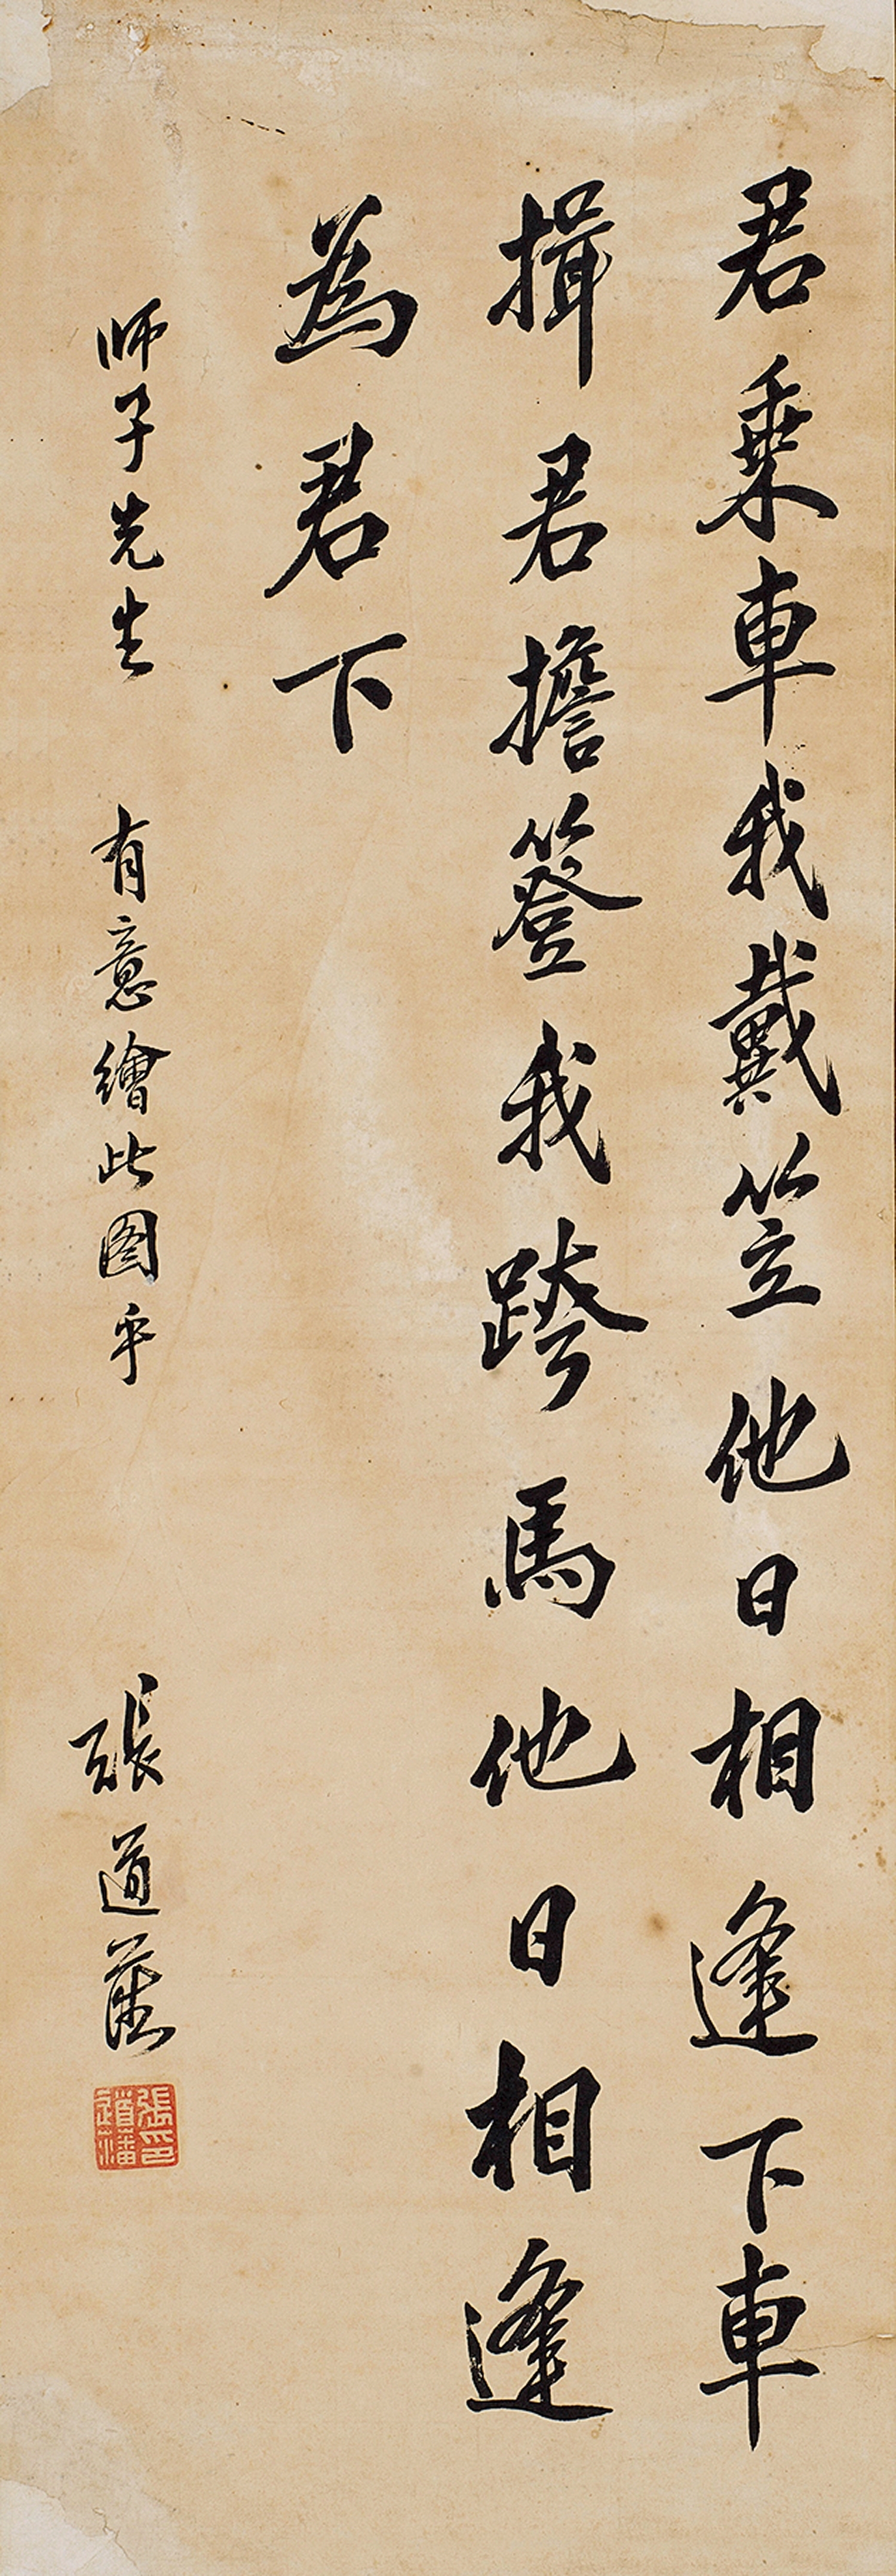 君乘車我戴笠他日相逢下車
揖君擔簦我跨馬他日相逢
為君下
師子先生 有意繪此图乎 張道藩
張道藩印